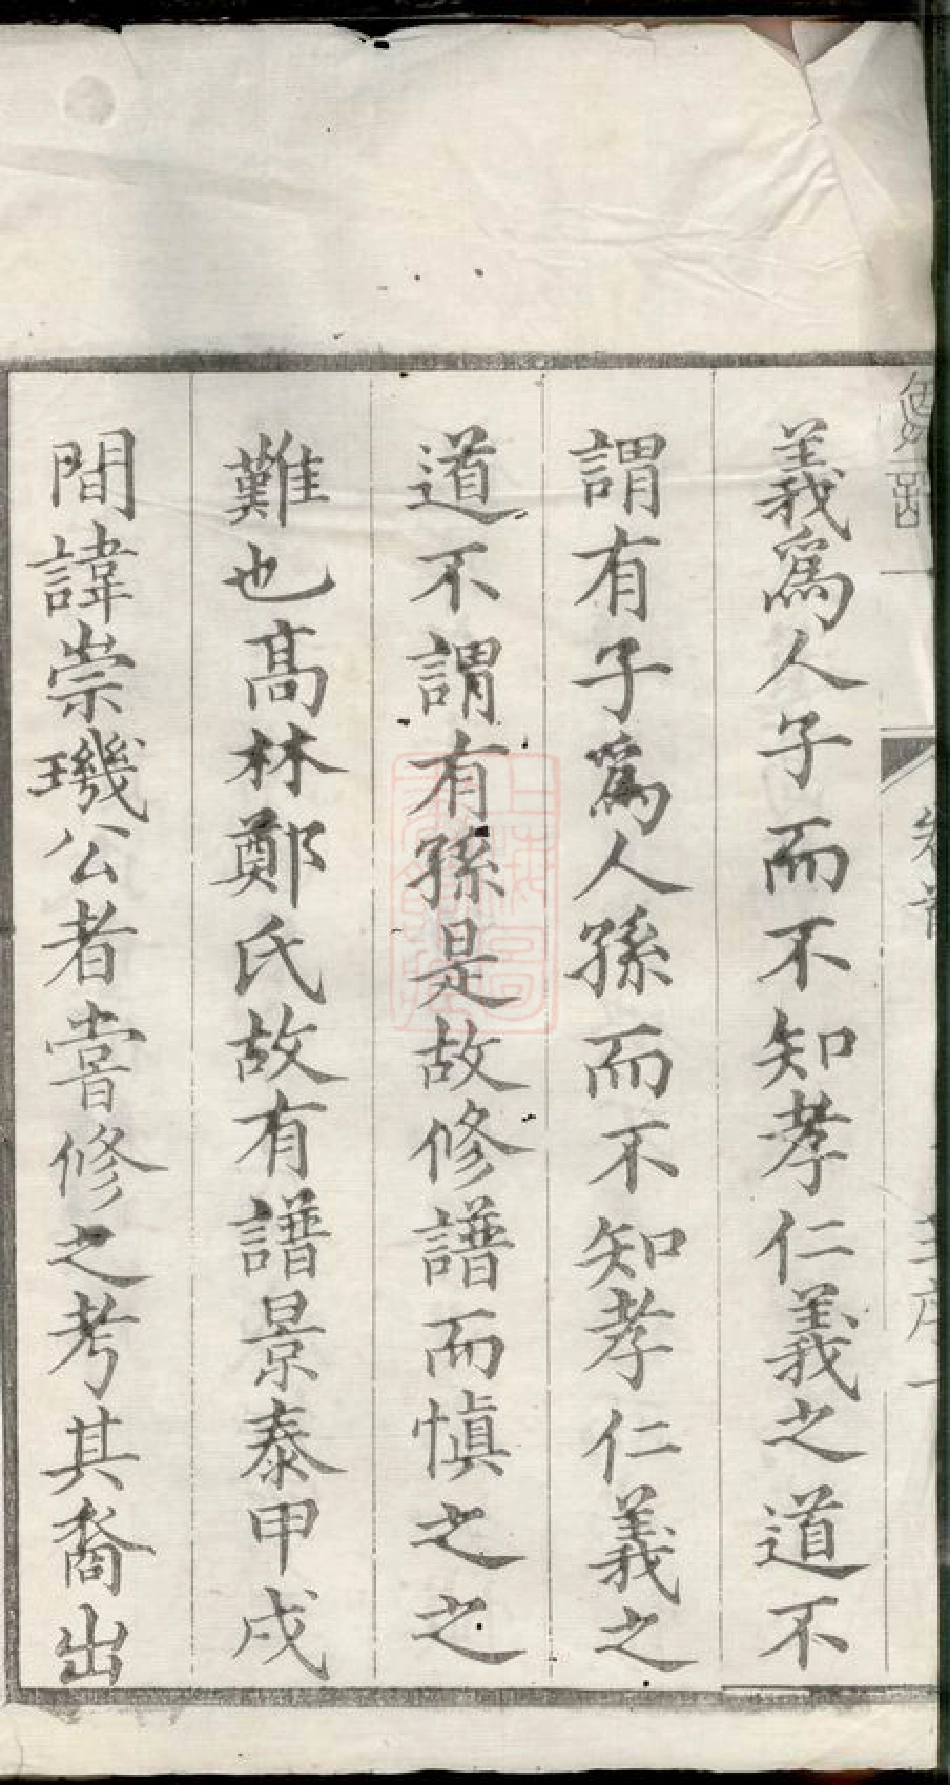 義爲人子而不知孝仁義之道不
謂有子爲人孫而不知孝仁義之
道不謂有孫是故修譜而慎之之
難也髙林鄭氏故有譜景泰甲戌
間諱崇璣公者嘗修之考其裔出